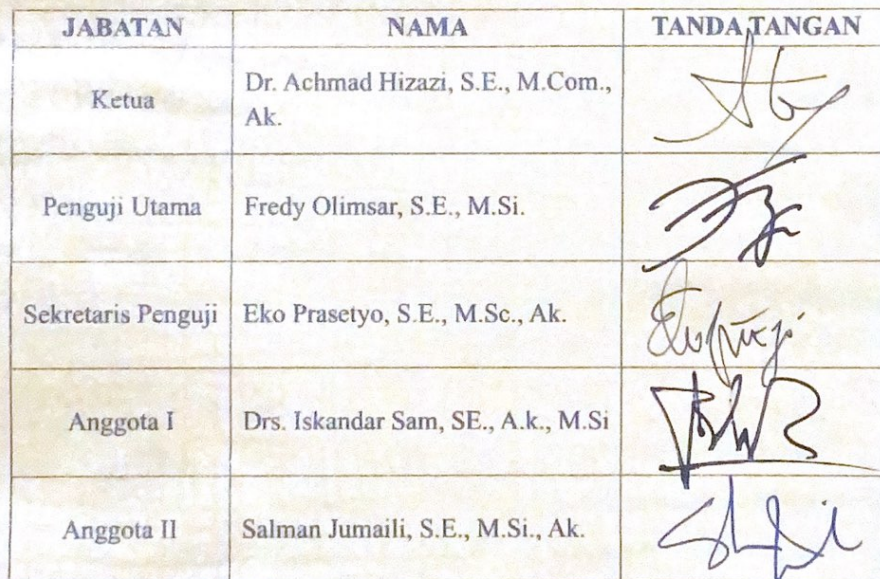 JABATAN NAMA TANDA TANGAN
Ketua Dr. Achmad Hizazi, S.E., M.Com.,
Ak.
Penguji Utama Fredy Olimsar, S.E., M.Si.
Sekretaris Penguji Eko Prasetyo, S.E., M.Sc., Ak.
Anggota I Drs. Iskandar Sam, SE., A.k., M.Si
Anggota II Salman Jumaili, S.E., M.Si., Ak.